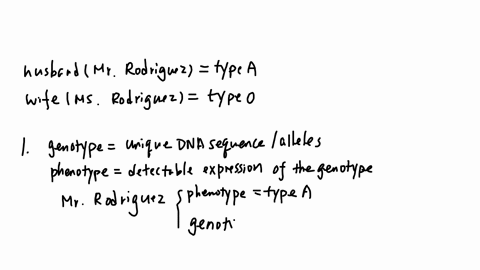 husband (Mr. Rodriguez) = type A
wife (Ms. Rodriguez) = type O
1. genotype = unique DNA sequence / alleles
phenotype = detectable expression of the genotype
Mr. Rodriguez { phenotype = type A
genoti